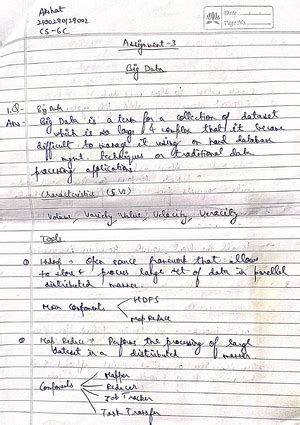 Akshat
CS-6C
Date
Page No.
Assignment-3
Big Data
1.Q. Big Data
Ans- Big Data is a term for a collection of dataset
which is so large & complex that it became
difficult to manage it using on hand database
mgmt. techniques or traditional data
processing applications.
Characteristics (5V)
Volume, Variety, Value, Velocity, Veracity
Tools
Hadoop - Open source framework that allow
to store & process large set of data in parallel
distributed manner
Main Components HDFS
Map Reduce
Map Reduce → Performs the processing of large
dataset in a distributed manner
Components Mapper
Reducer
Job Tracker
Task